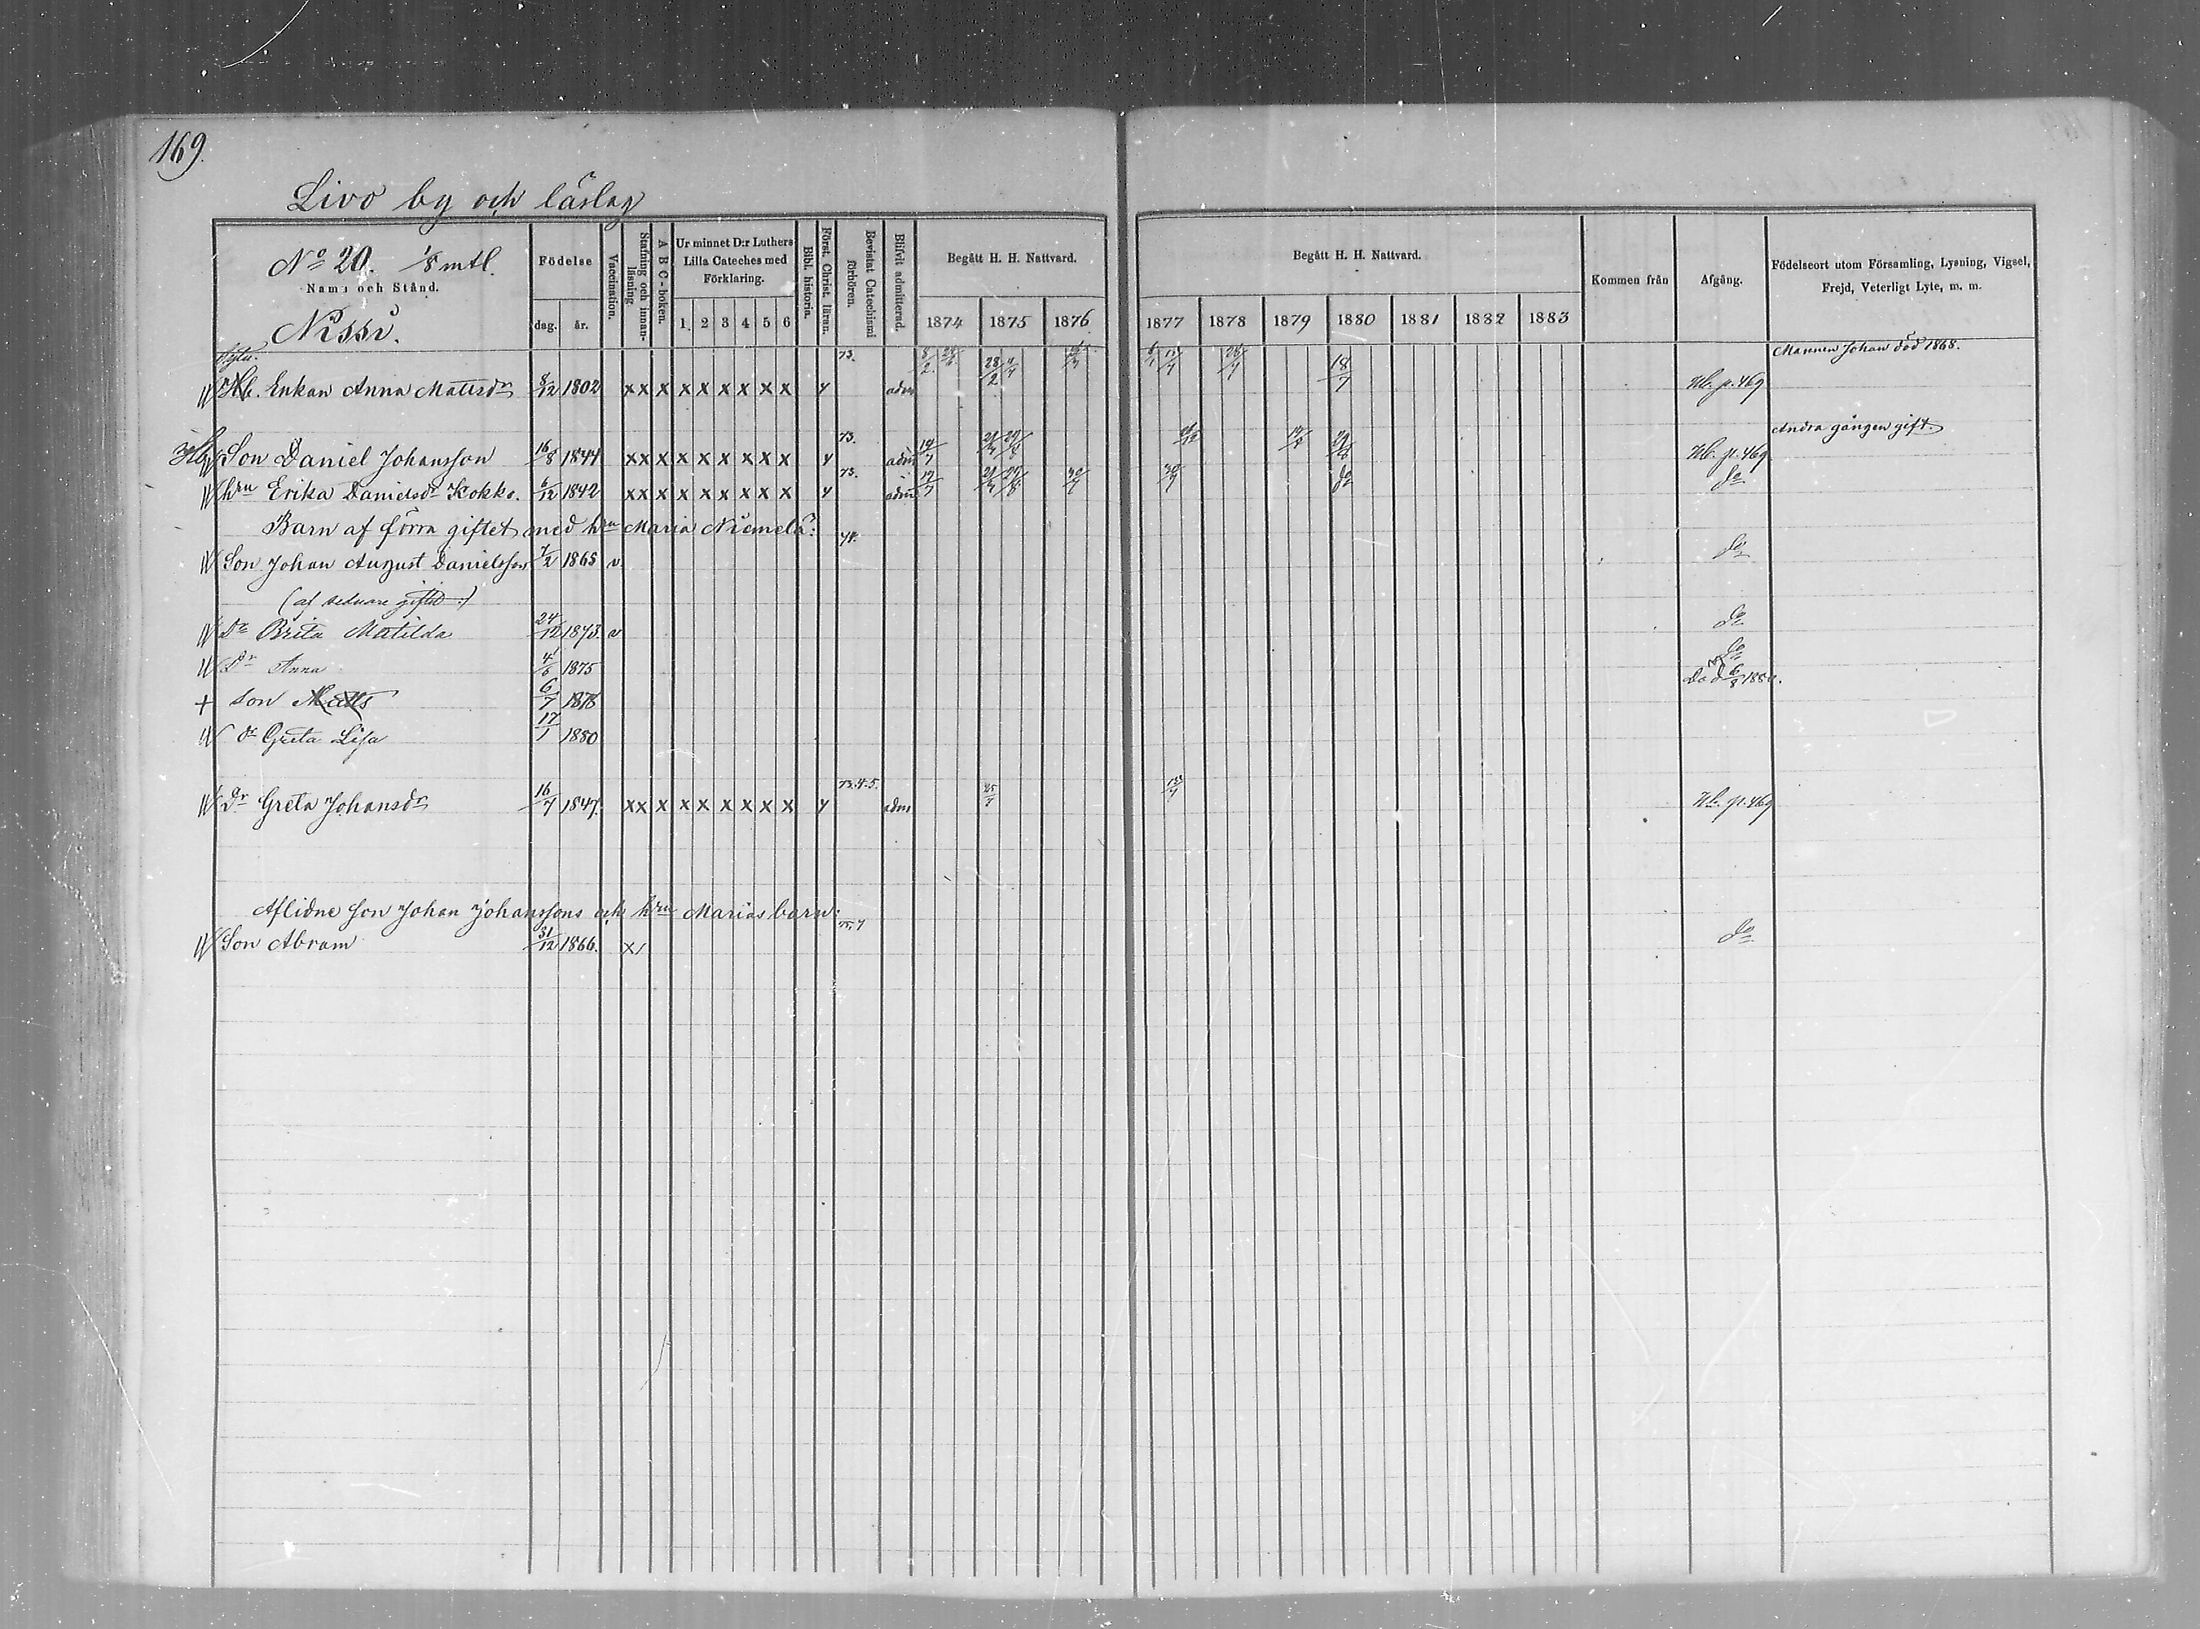 169.
Livo by och läslag
No 20. 1/8 mtl.
Namn och Stånd.
Nissi.
Födelse
dag. år.
Vaccination.
Stafning och innan-läsning
A B C-boken.
Ur minnet D:r Luthers
Lilla Cateches med
Förklaring.
1. 2 3 4 5 6
Bibl. historia.
Först. Christ. läran.
Bevistat Catechismi förhören.
Blifvit admitterad.
Begått H. H. Nattvard.
1874 1875 1876
Begått H. H. Nattvard.
1877 1878 1879 1880 1881 1882 1883
Kommen från
Afgång.
Födelseort utom Församling, Lysning, Vigsel,
Frejd, Veterligt Lyte, m. m.
73. 28/2 18/7 Mannen Johan död 1868.
Enkan Anna Mattsdr 8/12 1802 x x x x x x x x x y adm Hb. p. 469
73. Andra gången gift.
Son Daniel Johansson 16/8 1844 x x x x x x x x x y adm Hb. p. 469
hru Erika Danielsdr Kokko. 6/12 1842 x x x x x x x x x y 73. adm do
Barn af förra giftet med hru Maria Niemelä:
Son Johan August Danielsson 7/2 1865 v do
(af sednare giftet:)
Dr Brita Matilda 24/12 1873. v do
Dr Anna 4/6 1875 do
+ Son Matts 6/7 1878 Död 6/8 1880.
dr Greta Lisa 17/1 1880
73.4.5.
Dr Greta Johansdr 16/7 1847. x x x x x x x x x y adm Hb. p. 469
Aflidne son Johan Johanssons och hru Marias barn:
Son Abram 31/12 1866. x/ do